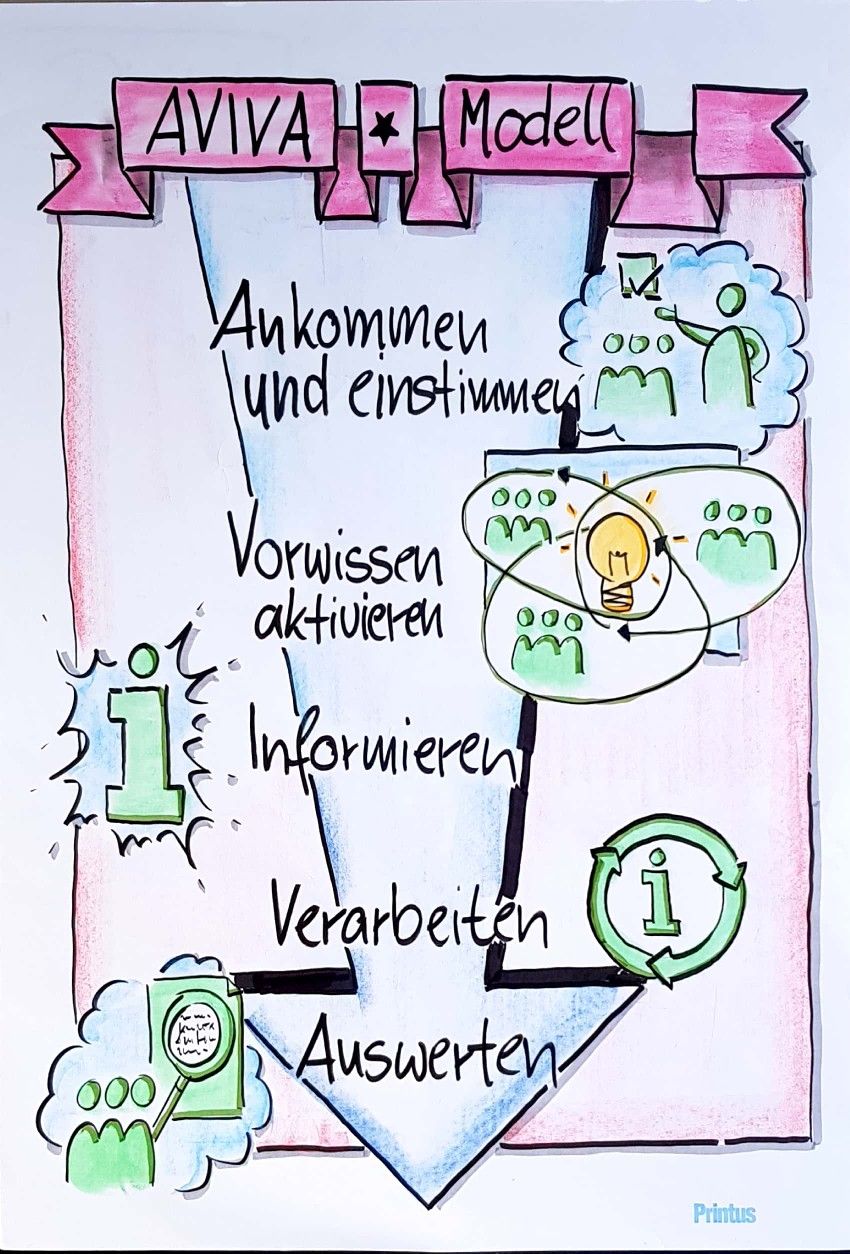 AVIVA ★ Modell
Ankommen
und einstimmen
Vorwissen
aktivieren
Informieren
i
Verarbeiten
i
Auswerten
Printus